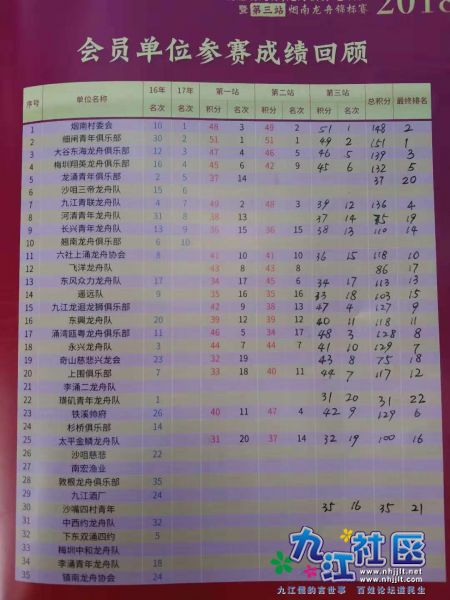 暨第三站 烟南龙舟锦标赛 2018
会员单位参赛成绩回顾
序号 单位名称 16年名次 17年名次 第一站 积分 名次 第二站 积分 名次 第三站 积分 名次 总积分 最终排名
1 烟南村委会 10 1 48 3 49 2 51 1 148 2
2 细闸青年俱乐部 30 2 51 1 51 1 49 2 151 1
3 大谷东海龙舟俱乐部 12 3 47 4 46 5 46 5 139 3
4 梅圳翔英龙舟俱乐部 16 4 45 6 42 9 45 6 132 5
5 龙涌青年俱乐部 2 5 37 14 37 20
6 沙咀三帝龙舟队 15 6
7 九江青联龙舟队 4 7 49 2 48 3 39 12 136 4
8 河清青年龙舟队 31 8 38 13 37 14 75 19
9 长兴青年龙舟队 13 9 36 15 36 15 38 13 110 14
10 翘南龙舟俱乐部 6 10
11 六社上涌龙舟协会 8 41 10 41 10 36 15 118 10
12 飞洋龙舟队 43 8 43 8 86 17
13 东风众力龙舟队 17 34 17 45 6 34 17 113 13
14 遥远队 9 35 16 35 16 33 18 103 15
15 九江龙迎龙狮俱乐部 42 9 38 13 47 4 127 9
16 东興龙舟队 20 39 12 39 12 40 11 118 11
17 涌湾瓯粤龙舟俱乐部 11 46 5 34 17 48 3 128 8
18 永兴龙舟队 3 44 7 44 7 41 10 129 7
19 奇山慈悲兴龙会 23 32 19 43 8 75 18
20 上围俱乐部 7 33 18 40 11 44 7 117 12
21 李涌二龙舟队
22 璜矶青年龙舟队 1 31 20 31 22
23 铁溪帅府 26 40 11 47 4 42 9 129 6
24 杉桥俱乐部 14
25 太平金鳞龙舟队 31 20 37 14 32 19 100 16
26 沙咀慈悲 22
27 南宏渔业
28 敦根龙舟俱乐部 35
29 九江酒厂 24
30 沙嘴四村青年 35 16 35 21
31 中西约龙舟队 32
32 下东双涌四约 5
33 梅圳中和龙舟队
34 李涌青年龙舟队 18
35 镇南龙舟协会 24
九江社区
www.nhjjlt.net
www.nhjjlt.com
九江儒韵言世事 百姓论坛道民生